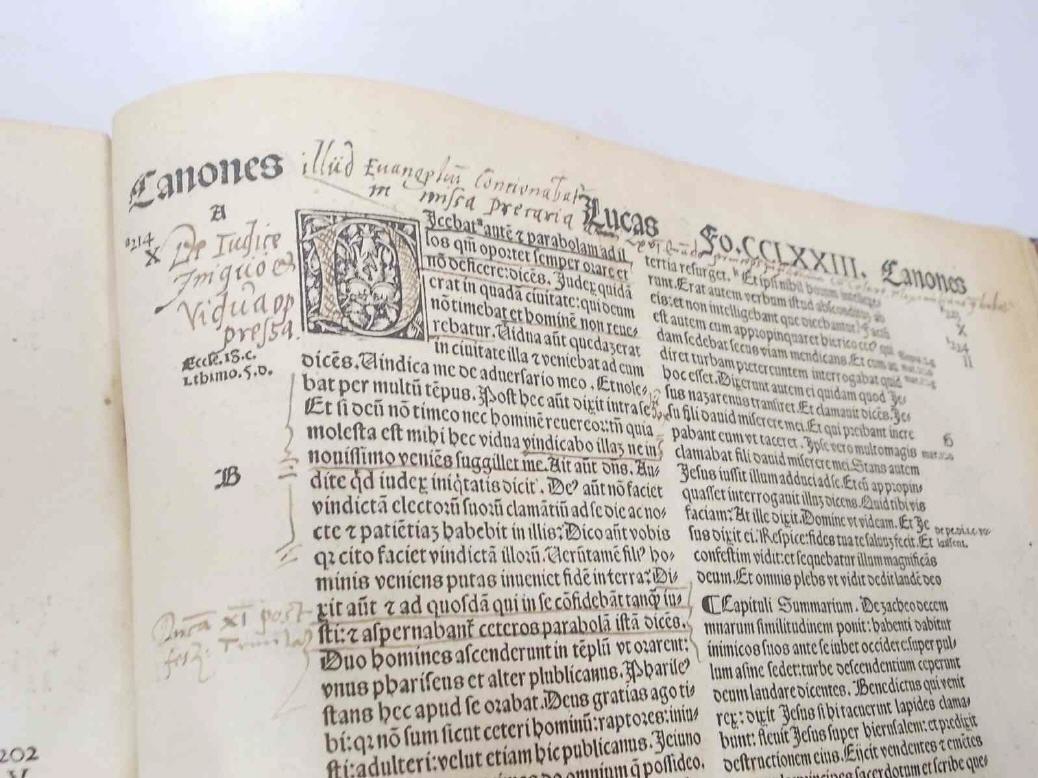 Canones
illud Evangeliũ
missa precaria
Lucas
Fo.CCLXXIII.
Canones
A
214
X
De Iudice
Iniquo et
Vidua op
pressa.
Eccle.18.c.
1.thimo.5.d.
B
Dicebat aũt ⁊ parabolam ad il
los qm̃ oportet semper orare et
nõ deficere: dicẽs. Judex quidã
erat in quadã ciuitate: qui deum
nõ timebat et hominẽ non reue⸗
rebatur. Uidua aũt quedaz erat
in ciuitate illa ⁊ veniebat ad eum
dicẽs. Uindica me de aduersario meo. Et nole⸗
bat per multũ tẽpus. Post hec aũt dixit intra se
Et si deũ nõ timeo nec hominẽ reuereor: tñ quia
molesta est mihi hec vidua vindicabo illaz ne in
nouissimo veniẽs suggillet me. Ait aũt dñs. Au⸗
dite qd iudex iniq̃tatis dicit. De⁹ aũt nõ faciet
vindictã electorũ suorũ clamãtiũ ad se die ac no⸗
cte ⁊ patiẽtiaz habebit in illis? Dico aũt vobis
qz cito faciet vindictã illorũ. Uerũtamẽ fili⁹ ho⸗
minis veniens putas inueniet fidẽ in terra? Di⸗
xit aũt ⁊ ad quosdã qui in se cõfidebãt tanq̃ iu⸗
sti: ⁊ aspernabant̃ ceteros parabolã istã dicẽs.
Duo homines ascenderunt in tẽplũ vt orarent:
vnus phariseus et alter plublicanus. Pharise⁹
stans hec apud se orabat. Deus gratias ago ti⸗
bi: qz nõ sum sicut ceteri hominũ: raptores: iniu⸗
sti: adulteri: velut etiam hic publicanus. Jeiuno
omnium q̃ possideo.
XI post
tertia resurget. Et ipsi nihil horum intellexe
runt. Erat autem verbum istud absconditum ab
eis: et non intelligebant que dicebantur. Factũ
est autem cum appropinquaret hierico
dam sedebat secus viam mendicans. Et cum
diret turbam pretereuntem interrogabat quid
hoc esset. Dixerunt autem ei quidam quod Je⸗
sus nazarenus transiret. Et clamauit dicẽs. Je⸗
su fili dauid miserere mei. Et qui preibant incre
pabant eum vt taceret. Ipse vero multo magis
clamabat fili dauid miserere mei. Stans autem
Jesus iussit illum adduci ad se. Et cũ appropin⸗
quasset interrogauit illuz dicens. Quid tibi vis
faciam? At ille dixit. Domine vt videam. Et Je
sus dixit ei. Respice: fides tua te saluuz fecit. Et
confestim vidit: et sequebatur illum magnificãs
deum. Et omnis plebs vt vidit dedit laudẽ deo
X
II
6
Capituli Summarium. De zacheo decem
mnarum similitudinem ponit: habenti dabitur
inimicos suos ante se iubet occidere: super pul⸗
lum asine sedet: turbe descendentium ceperunt
deum laudare dicentes. Benedictus qui venit
rex: dixit Jesus si hi tacuerint lapides clama⸗
bunt: fleuit Jesus super hierusalem: et predixit
destructionem eius. Eijcit vendentes ⁊ emẽtes
sacerdotum et scribe que⸗
202
V